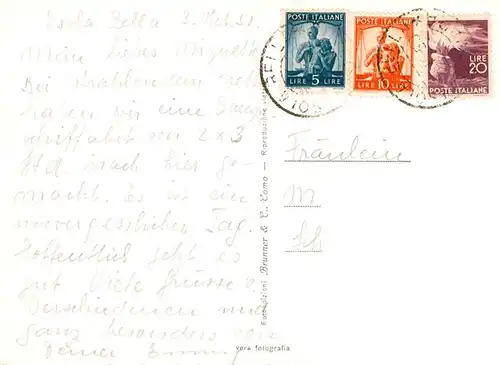 Isola Bella 3. 51.
Mein liebes
Bei
haben wir eine
schiffahrt von 2 x 3
Std. nach hier ge-
macht. Es ist ein
unvergesslicher Tag.
Hoffentlich geht es
gut Viele Grüsse v.
Verschiedenen und
ganz besonders von
Deiner
POSTE ITALIANE
LIRE 5 LIRE
POSTE ITALIANE
LIRE 10 LIRE
LIRE
20
POSTE ITALIANE
Fräulein
M
Sch
Brunner & C., Como — Riproduzione
vera fotografia